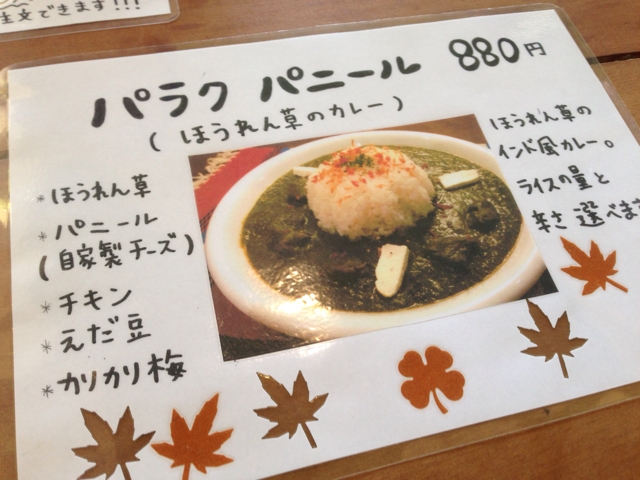 注文できます!!!
パラク パニール 880円
(ほうれん草のカレー)
*ほうれん草
*パニール
(自家製チーズ)
*チキン
*えだ豆
*カリカリ梅
ほうれん草の
インド風カレー。
ライスの量と
辛さ 選べます